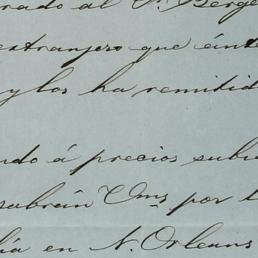 rado al Sr. Berge
extranjero que ánte
y los ha remitid
ndo á precios subi
sabrán Vms por l
lía en N. Orleans